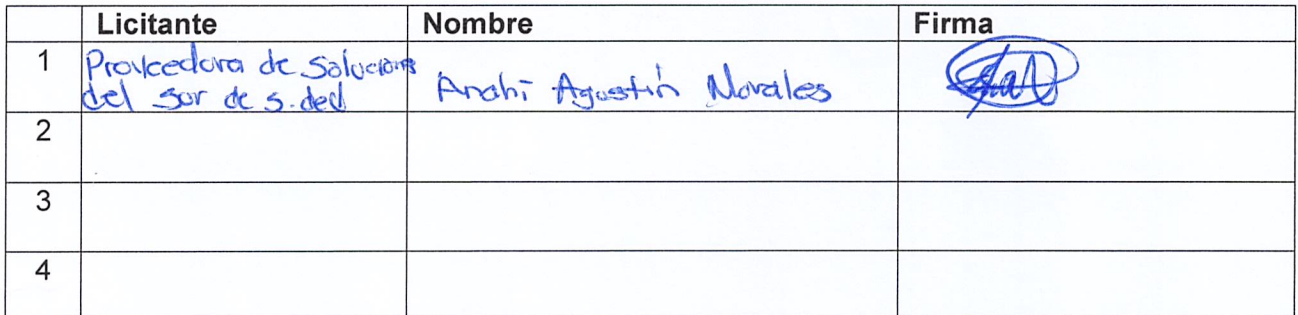 Licitante Nombre Firma
1 Proveedora de Soluciones
del sur de s. de Anahí Agustín Morales
2
3
4